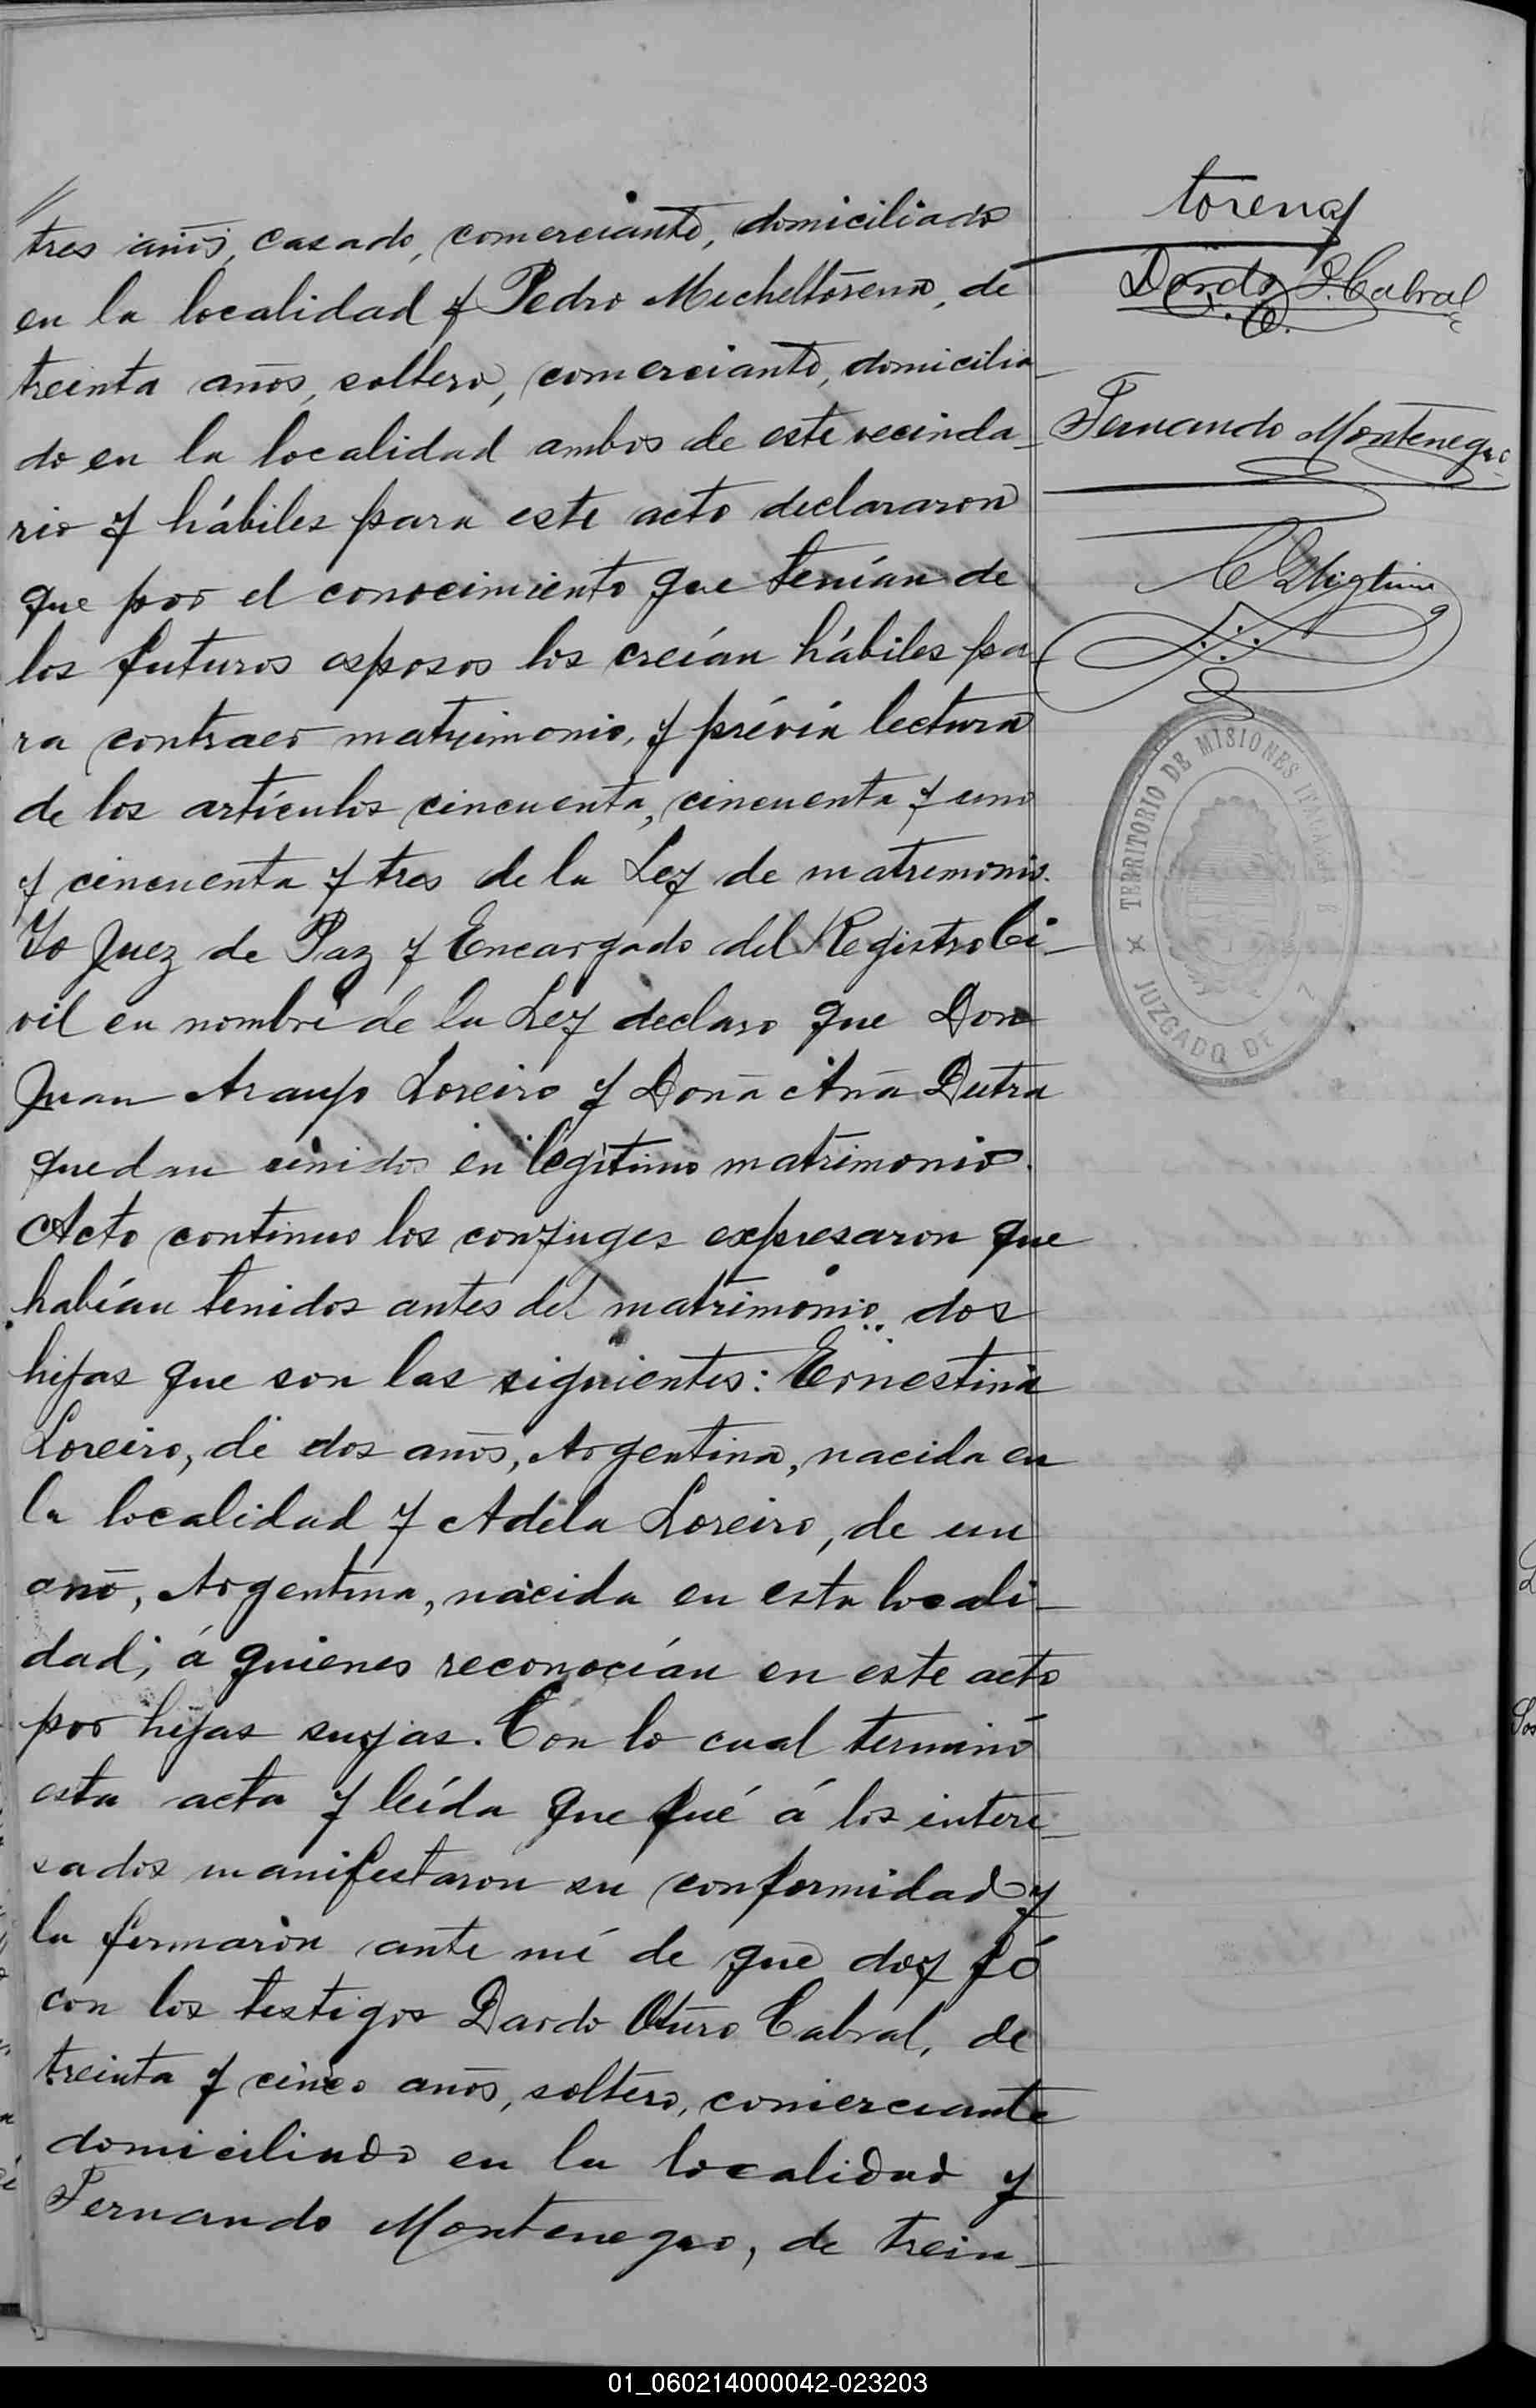 tres años, casado, comerciante, domiciliado
en la localidad y Pedro Micheltorena, de
treinta años, soltero, comerciante, domicilia-
do en la localidad ambos de este vecinda-
rio y hábiles para este acto declararon
que por el conocimiento que tenían de
los futuros esposos los creían hábiles pa-
ra contraer matrimonio, y prévia lectura
de los artículos cincuenta, cincuenta y uno
y cincuenta y tres de la Ley de matrimonio.
Yo Juez de Paz y Encargado del Registro Ci-
vil en nombre de la Ley declaro que Don
Juan Araujo Loreiro y Doña Ana Dutra
quedan unidos en legítimo matrimonio.
Acto continuo los conyuges expresaron que
habían tenidos antes del matrimonio dos
hijas que son las siguientes: Ernestina
Loreiro, de dos años, Argentina, nacida en
la localidad y Adela Loreiro, de un
año, Argentina, nacida en esta locali-
dad, á quienes reconocían en este acto
por hijas suyas. Con lo cual terminó
esta acta y leída que fué á los intere-
sados manifestaron su conformidad y
la firmaron ante mí de que doy fé
con los testigos Dardo Oturo Cabral, de
treinta y cinco años, soltero, comerciante
domiciliado en la localidad y
Fernando Montenegro, de trein-
torena
Dardo O. Cabral
Fernando Montenegro
TERRITORIO DE MISIONES
JUZGADO DE
01_060214000042-023203